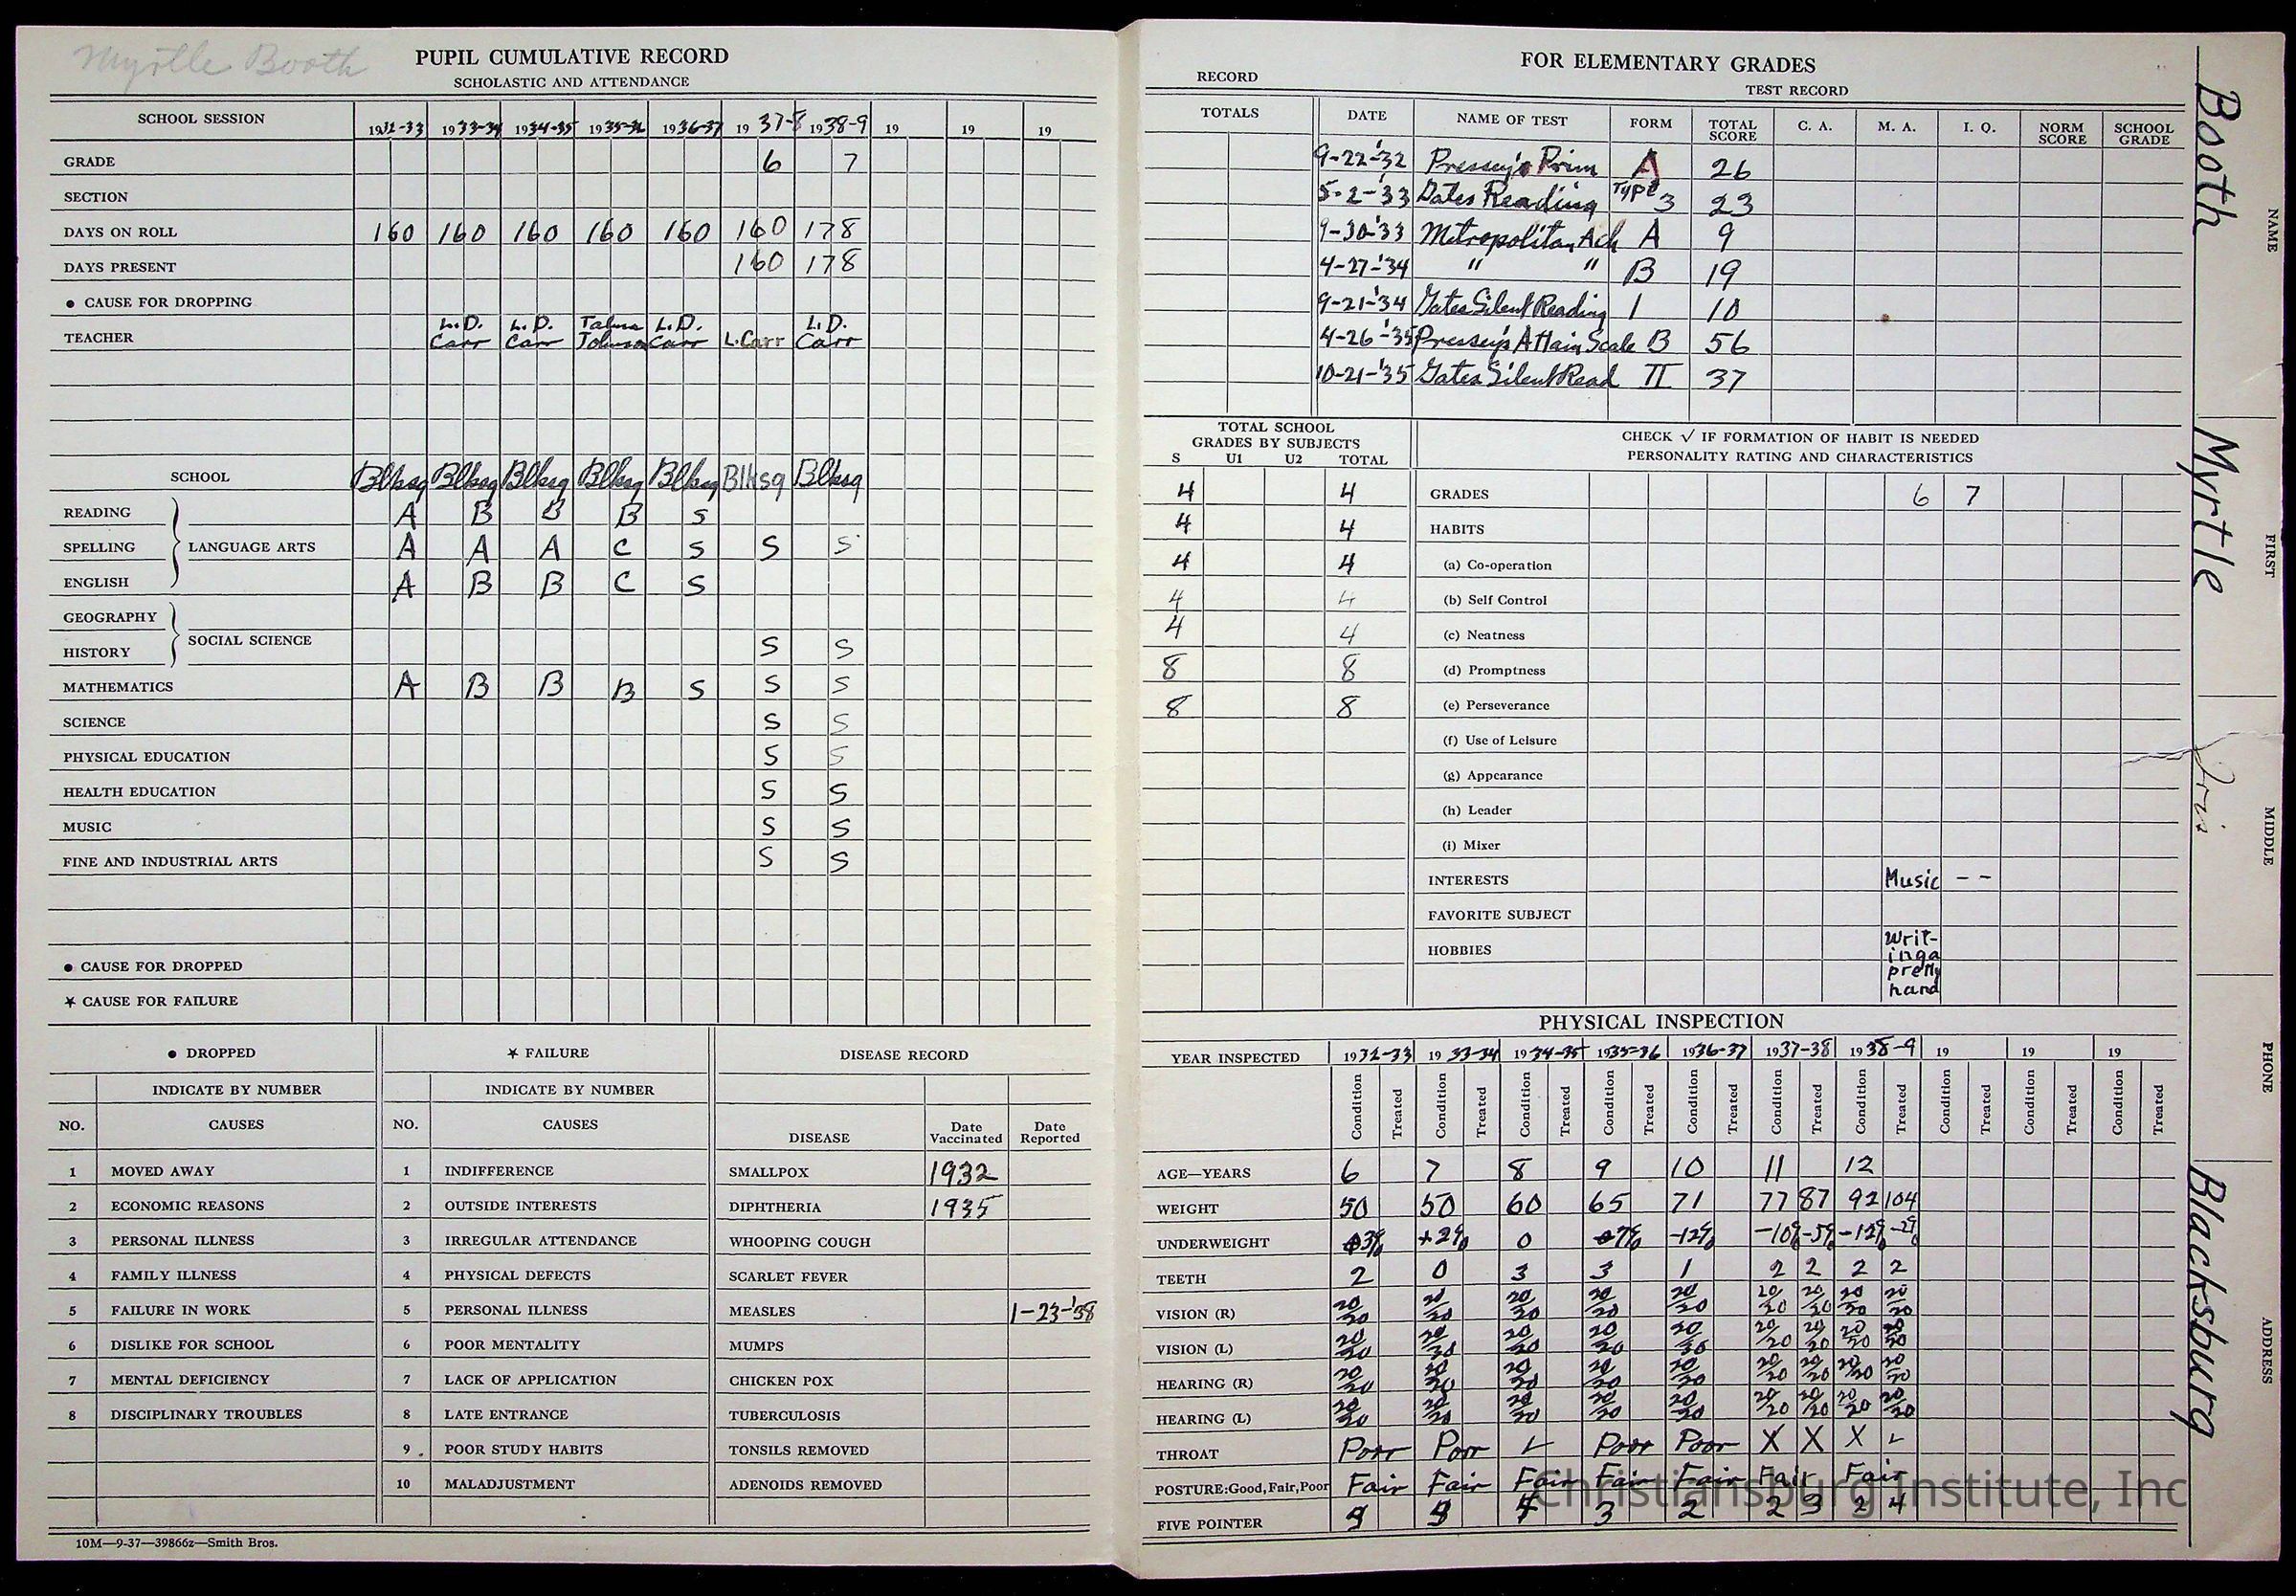 Myrtle Booth
PUPIL CUMULATIVE RECORD
SCHOLASTIC AND ATTENDANCE
SCHOOL SESSION 1932-33 1933-34 1934-35 1935-36 1936-37 1937-8 1938-9 19 19 19
GRADE 6 7
SECTION
DAYS ON ROLL 160 160 160 160 160 160 178
DAYS PRESENT 160 178
● CAUSE FOR DROPPING
TEACHER L.D. Carr L.D. Carr Talma Johnson L.D. Carr L. Carr L.D. Carr
SCHOOL Blksq Blksq Blksq Blksq Blksq Blksq Blksq
READING A B B B S
SPELLING LANGUAGE ARTS A A A C S S S
ENGLISH A B B C S
GEOGRAPHY
SOCIAL SCIENCE
HISTORY S S
MATHEMATICS A B B B S S S
SCIENCE S S
PHYSICAL EDUCATION S S
HEALTH EDUCATION S S
MUSIC S S
FINE AND INDUSTRIAL ARTS S S
● CAUSE FOR DROPPED
★ CAUSE FOR FAILURE
● DROPPED ★ FAILURE DISEASE RECORD
INDICATE BY NUMBER INDICATE BY NUMBER
NO. CAUSES NO. CAUSES DISEASE Date Vaccinated Date Reported
1 MOVED AWAY 1 INDIFFERENCE SMALLPOX 1932
2 ECONOMIC REASONS 2 OUTSIDE INTERESTS DIPHTHERIA 1935
3 PERSONAL ILLNESS 3 IRREGULAR ATTENDANCE WHOOPING COUGH
4 FAMILY ILLNESS 4 PHYSICAL DEFECTS SCARLET FEVER
5 FAILURE IN WORK 5 PERSONAL ILLNESS MEASLES 1-23-'38
6 DISLIKE FOR SCHOOL 6 POOR MENTALITY MUMPS
7 MENTAL DEFICIENCY 7 LACK OF APPLICATION CHICKEN POX
8 DISCIPLINARY TROUBLES 8 LATE ENTRANCE TUBERCULOSIS
9 POOR STUDY HABITS TONSILS REMOVED
10 MALADJUSTMENT ADENOIDS REMOVED
10M—9-37—39866z—Smith Bros.
FOR ELEMENTARY GRADES
RECORD TEST RECORD
TOTALS DATE NAME OF TEST FORM TOTAL SCORE C. A. M. A. I. Q. NORM SCORE SCHOOL GRADE
9-22-'32 Pressey's Prim A 26
5-2-'33 Gates Reading Type 3 23
9-30-'33 Metropolitan Ach A 9
4-27-'34 " " B 19
9-21-'34 Gates Silent Reading 1 10
4-26-'35 Pressey's Attain Scale B 56
10-21-'35 Gates Silent Read II 37
TOTAL SCHOOL
GRADES BY SUBJECTS
S U1 U2 TOTAL
CHECK √ IF FORMATION OF HABIT IS NEEDED
PERSONALITY RATING AND CHARACTERISTICS
4 4 GRADES 6 7
4 4 HABITS
4 4 (a) Co-operation
4 4 (b) Self Control
4 4 (c) Neatness
8 8 (d) Promptness
8 8 (e) Perseverance
(f) Use of Leisure
(g) Appearance
(h) Leader
(i) Mixer
INTERESTS Music - -
FAVORITE SUBJECT
HOBBIES Writ-
ing a
pretty
hand
PHYSICAL INSPECTION
YEAR INSPECTED 1932-33 1933-34 1934-35 1935-36 1936-37 1937-38 1938-9 19 19 19
Condition Treated Condition Treated Condition Treated Condition Treated Condition Treated Condition Treated Condition Treated Condition Treated Condition Treated Condition Treated
AGE—YEARS 6 7 8 9 10 11 12
WEIGHT 50 50 60 65 71 77 87 92 104
UNDERWEIGHT +2% 0 -12% -10% -5% -12% -2%
TEETH 2 0 3 3 1 2 2 2 2
VISION (R)
VISION (L)
HEARING (R)
HEARING (L)
THROAT Poor Poor ✓ Poor Poor X X X ✓
POSTURE:Good, Fair, Poor Fair Fair Fair Fair Fair Fair Fair
FIVE POINTER 3 2 2 3 2 4
Booth Myrtle Iris Blacksburg
NAME FIRST MIDDLE PHONE ADDRESS
Christiansburg Institute, Inc